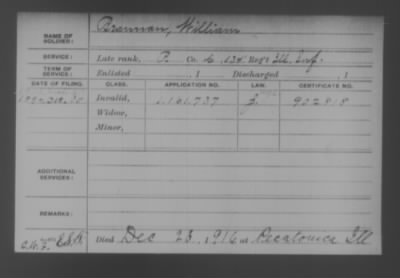 NAME OF SOLDIER: Brennan, William
SERVICE: Late rank, P. Co. C, 134" Reg't Ill. Inf.
TERM OF SERVICE: Enlisted , 1 Discharged , 1
DATE OF FILING. CLASS. APPLICATION NO. LAW. CERTIFICATE NO.
Invalid, 1.161.737 902818
Widow,
Minor,
ADDITIONAL SERVICES:
REMARKS:
Died Dec 23, 1916 at Pecatonica Ill